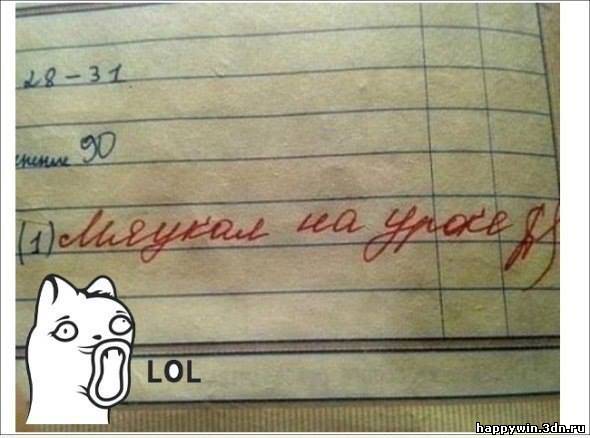 28-31
90
(1) Мяукал на уроке
LOL
happywin.3dn.ru